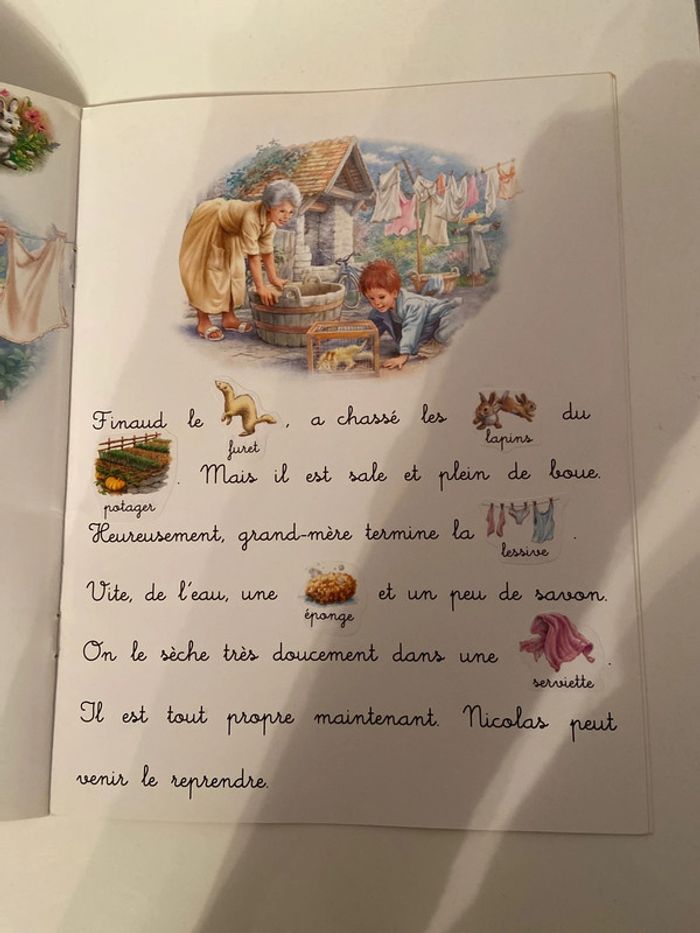 Finaud le furet, a chassé les lapins du
potager. Mais il est sale et plein de boue.
Heureusement, grand-mère termine la lessive.
Vite, de l'eau, une éponge et un peu de savon.
On le sèche très doucement dans une serviette.
Il est tout propre maintenant. Nicolas peut
venir le reprendre.